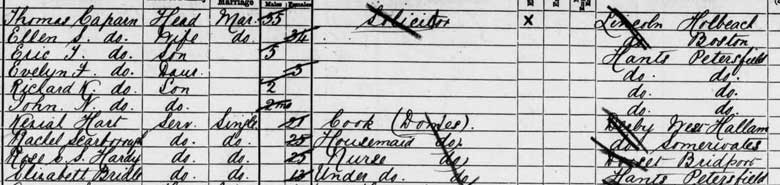 Marriage Males Females
Thomas Caparn Head Mar. 35 Solicitor X Lincoln Holbeach
Ellen S. do. Wife do. 34 do Boston
Eric T. do. Son 5 Hants Petersfield
Evelyn F. do. Daur. 3 do. do.
Richard K. do. Son 2 do. do.
John N. do. do. 2 mo do. do.
Hart Serv. Single 21 Cook (Domes). Derby West Hallam
Rachel Scarborough do. do. 25 Housemaid do. do. Somercotes
Rose E. S. Hardy do. do. 25 Nurse do. Dorset Bridport
Elizabeth Bridle do. do. 13 Under do. do. Hants Petersfield